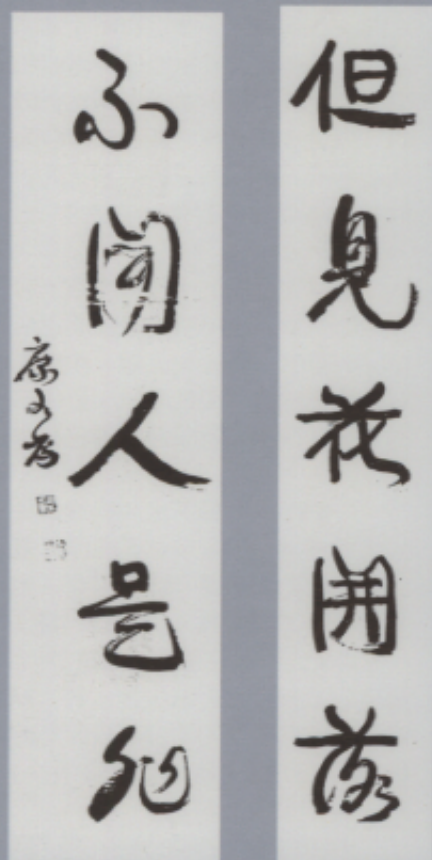 但見花開落
不聞人是非
康有為